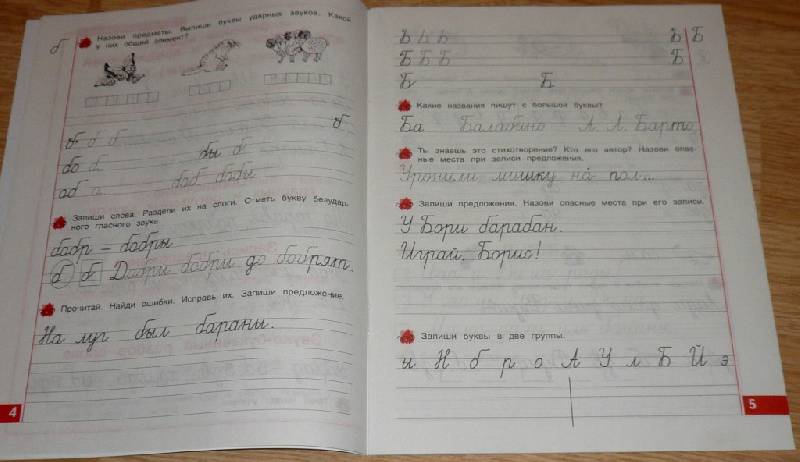 б
Назови предметы. Впиши буквы ударных звуков. Какой
у них общий элемент?
б б б б
бо б бы б
аб а баб бабы
Запиши слова. Раздели их на слоги. Отметь букву безударного гласного звука
бобр – бобры
б б Добры бобры до бобрят.
Прочитай. Найди ошибки. Исправь их. Запиши предложение.
На луг был барани.
4
Б Б Б Б Б
Б Б Б Б
Б Б
Какие названия пишут с большой буквы?
Ба Балакино А. Л. Барто
Ты знаешь это стихотворение? Кто его автор? Назови опасные места при записи предложения.
Уронили мишку на пол..
Запиши предложения. Назови опасные места при его записи.
У Бори барабан.
Играй, Борис!
Запиши буквы в две группы.
и Н б р о А У л Б Й з
5